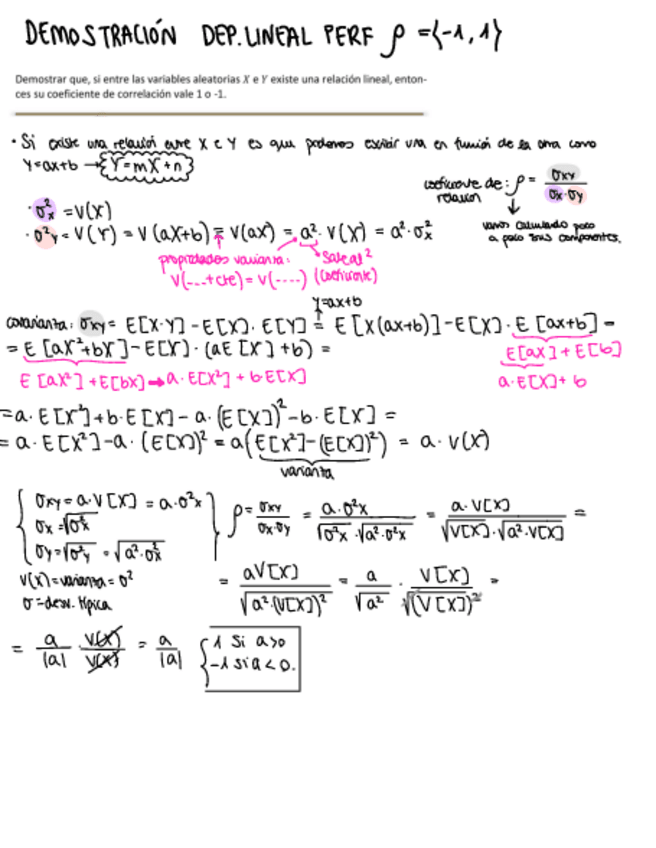 DEMOSTRACIÓN DEP. LINEAL PERF ρ = {-1, 1}
Demostrar que, si entre las variables aleatorias X e Y existe una relación lineal, enton-
ces su coeficiente de correlación vale 1 o -1.
• Si existe una relación entre X e Y es que podemos escribir una en función de la otra como
Y=ax+b → {Y=mX+n}
coeficiente de: ρ = σxy / σx·σy
relación
vamos calculando poco
a poco sus componentes.
· σ²x = V(X)
· σ²y = V(Y) = V(aX+b) = V(aX) = a²·V(X) = a²·σ²x
propiedades varianza: sale al²
V(...+cte) = V(....) (coeficiente)
Y=ax+b
covarianza: σxy = E[X·Y] - E[X]·E[Y] = E[X(ax+b)] - E[X]·E[ax+b] =
= E[aX²+bX] - E[X]·(aE[X]+b) =
E[ax] + E[b]
E[aX²] + E[bX] → a·E[X²] + b·E[X]
a·E[X] + b
= a·E[X²] + b·E[X] - a·(E[X])² - b·E[X] =
= a·E[X²] - a·(E[X])² = a(E[X²] - (E[X])²) = a·V(X)
varianza
{ σxy = a·V[X] = a·σ²x
σx = √σ²x
σy = √σ²y = √a²·σ²x
ρ = σxy / σx·σy = a·σ²x / √σ²x·√a²·σ²x = a·V[X] / √V[X]·√a²·V[X] =
V(X) = varianza = σ²
σ = desv. típica
= aV[X] / √a²·(V[X])² = a / √a² · V[X] / √(V[X])² =
= a / |a| · V(X) / V(X) = a / |a| { 1 si a>0
-1 si a<0.